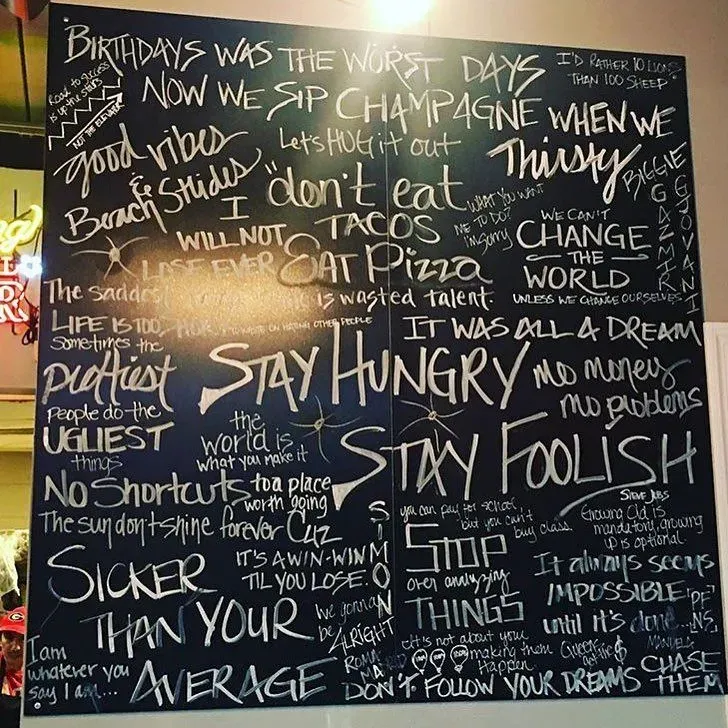 BIRTHDAYS WAS THE WORST DAYS
NOW WE SIP CHAMPAGNE WHEN WE
Thirsty
I'D RATHER 10 LIONS
THAN 100 SHEEP
Road to success
is up the stairs
NOT THE ELEVATOR
good vibes
& Beach Strides
Let's HUG it out
I don't eat
TACOS
I WILL NOT
LOSE EVER
EAT Pizza
WHAT YOU WANT
ME TO DO?
I'm Sorry
BIGGIE
GAZMIR
GJOVANI
WE CAN'T
CHANGE
THE
WORLD
UNLESS WE CHANGE OURSELVES
The saddest
is wasted talent.
LIFE IS TOO
ON HATING OTHER PEOPLE
IT WAS ALL A DREAM
Sometimes the
prettiest
people do the
UGLIEST
things
STAY HUNGRY
STAY FOOLISH
STEVE JOBS
mo money
mo problems
the
world is
what you make it
No Shortcuts to a place
worth going
The sun don't shine forever Cuz
SIMON
you can pay for school
but you can't
buy class.
Growing Old is
mandatory, growing
up is optional.
SICKER
THAN YOUR
AVERAGE
IT'S A WIN-WIN
TIL YOU LOSE.
We gonna
be ALRIGHT
STOP
over analyzing
THINGS
It always seems
IMPOSSIBLE
until it's done...
I am
whatever you
say I am...
ROMA
it's not about your
making them
Happen.
MANUEL
DON'T FOLLOW YOUR DREAMS CHASE
THEM